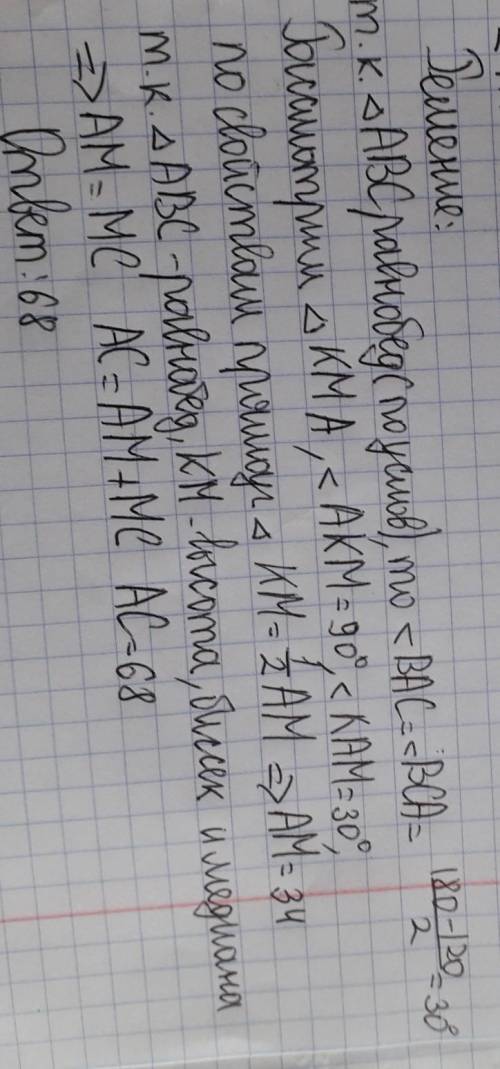 Решение:
т.к. △ ABC равнобед (по услов), то < BAC = < BCA = 180-120/2 = 30°
Рассмотрим △ KMA, < AKM = 90°, < KAM = 30°,
по свойствам прямоуг △ KM = 1/2 AM => AM = 34
т.к. △ ABC - равнобед, KM - высота, биссек и медиана
=> AM = MC AC = AM + MC AC = 68
Ответ: 68